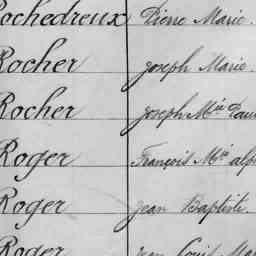 Rochedreux Pierre Marie.
Rocher Joseph Marie.
Rocher Joseph Mie
Roger François Mie
Roger Jean Baptiste.
Roger Jean Louis